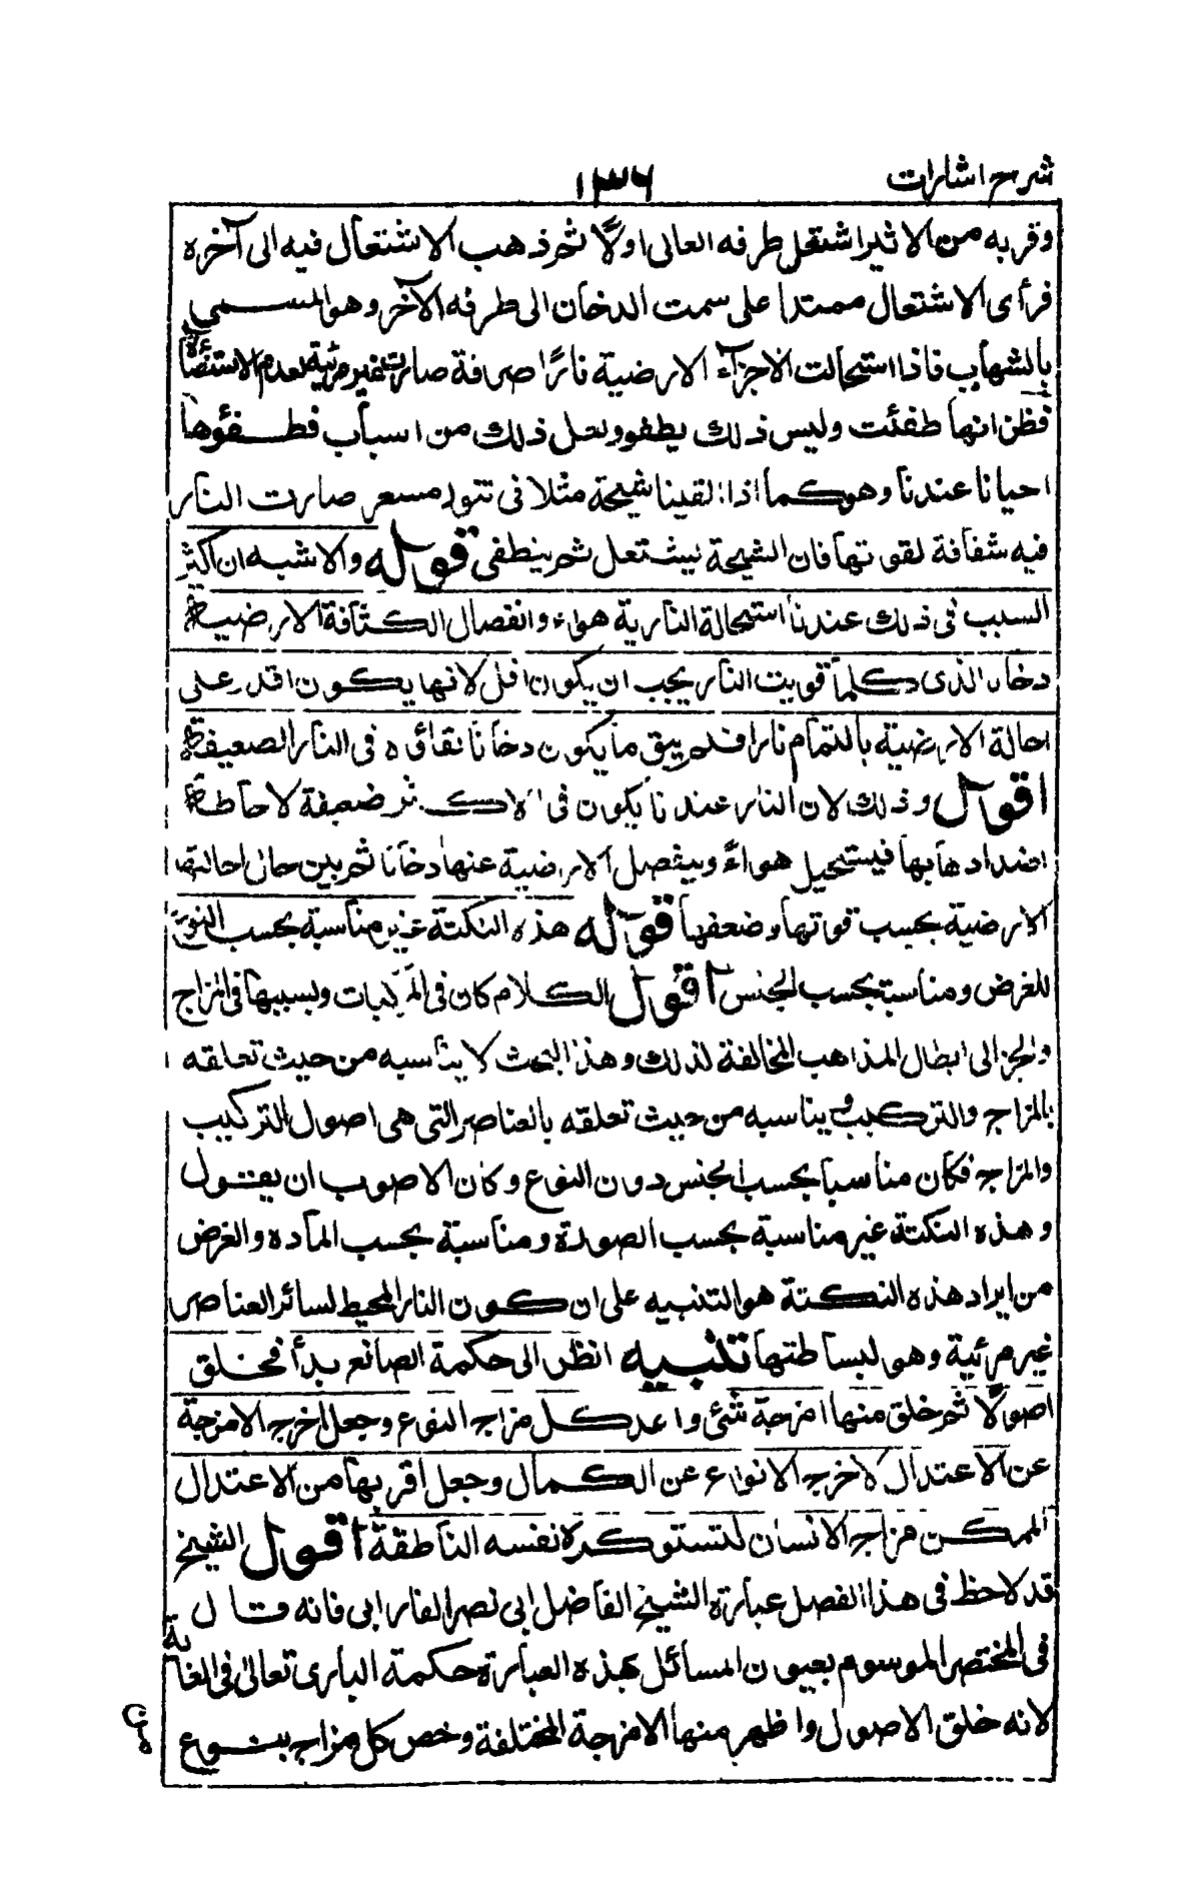 شرح اشارات
١٣٦
وقربه من الاثير اشتعل طرفه العالى اولًا ثم ذهب الاشتعال فيه الى آخره
فرأى الاشتعال ممتدا على سمت الدخان الى طرفه الآخر وهو المسمى
بالشهاب فاذا استحالت الاجزآء الارضية نارًا صرافة صارت غير مرئية لعدم الاستضاءة
فظن انها طفئت وليس ذلك بطفو ولعل ذلك من اسباب طفوها
احيانا عندنا وهو كما اذا القينا شيحة مثلا فى تنور مسعر صارت النار
فيه شفافة لقوتها فان الشيحة يشتعل ثم ينطفى قوله والاشبه ان اكثر
السبب فى ذلك عندنا استحالة النارية هواء وانفصال الكثافة الارضية
دخانا الذى كلما قويت النار يجب ان يكون اقل لانها يكون اقدر على
احالة الارضية بالتمام نارا فلم يبق ما يكون دخانا نقائه فى النار الضعيفة
اقول وذلك لان النار عندنا يكون فى الاكثر ضعيفة لاحاطة
اضدادها بها فيستحيل هواءً وينفصل الارضية عنها دخانا ثم بين حال احالتها
الارضية بحسب قوتها وضعفها قوله هذه النكتة غير مناسبة بحسب النوع
للغرض ومناسبة بحسب الجنس اقول الكلام كان فى المركبات وبسببها فى المزاج
وانجر الى ابطال المذاهب المخالفة لذلك وهذا البحث لا يناسبه من حيث تعلقه
بالمزاج والتركيب ويناسبه من حيث تعلقه بالعناصر التى هى اصول التركيب
والمزاج فكان مناسبا بحسب الجنس دون النوع وكان الاصوب ان يقول
وهذه النكتة غير مناسبة بحسب الصورة ومناسبة بحسب المادة والغرض
من ايراد هذه النكتة هو التنبيه على ان كون النار المحيط لسائر العناصر
غير مرئية وهو لبساطتها تنبيه انظر الى حكمة الصانع بدأ فخلق
اصولًا ثم خلق منها امزجة شئ واعد كل مزاج النوع وجعل اخرج الامزجة
عن الاعتدال لاخرج الانواع عن الكمال وجعل اقربها من الاعتدال
الممكن مزاج الانسان لتستوكره نفسه الناطقة اقول الشيخ
قد لاحظ فى هذا الفصل عبارة الشيخ الفاضل ابى نصر الفارابى فانه قال
فى المختصر الموسوم بعيون المسائل بهذه العبارة حكمة البارى تعالى فى الغاية
لانه خلق الاصول واظهر منها الامزجة المختلفة وخص كل مزاج بنوع